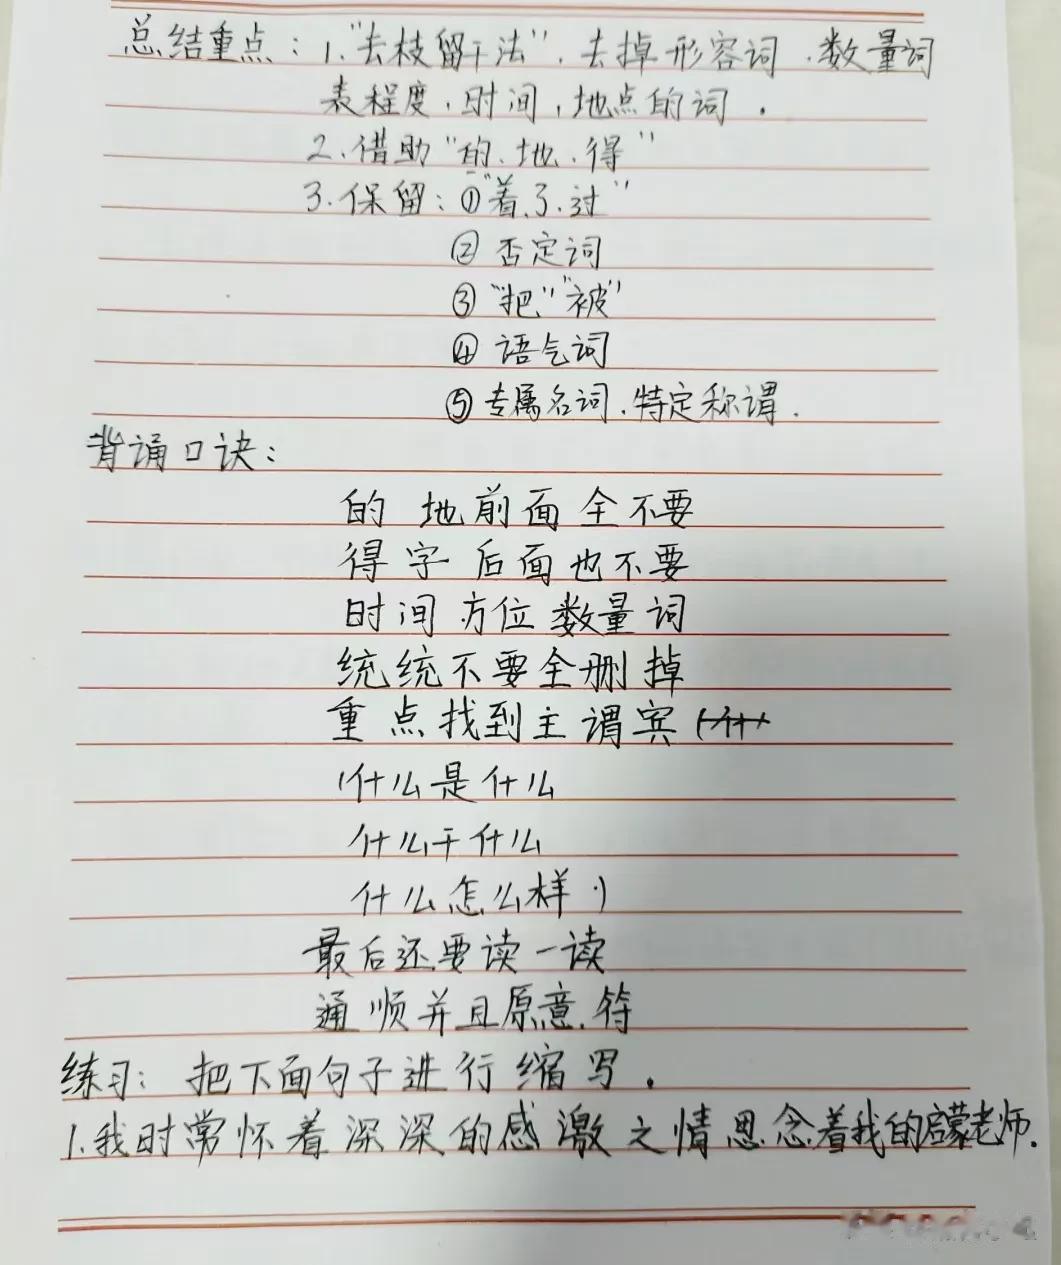 总结重点：1."去枝留干法"．去掉形容词．数量词
表程度，时间，地点的词．
2.借助"的．地．得"
3.保留：①"着．了．过"
②否定词
③"把""被"
④语气词
⑤专属名词．特定称谓．
背诵口诀：
的 地前面全不要
得字后面也不要
时间方位数量词
统统不要全删掉
重点找到主谓宾
(什么是什么
什么干什么
什么怎么样)
最后还要读一读
通顺并且原意．符
练习：把下面句子进行缩写．
1.我时常怀着深深的感激之情思念着我的启蒙老师．